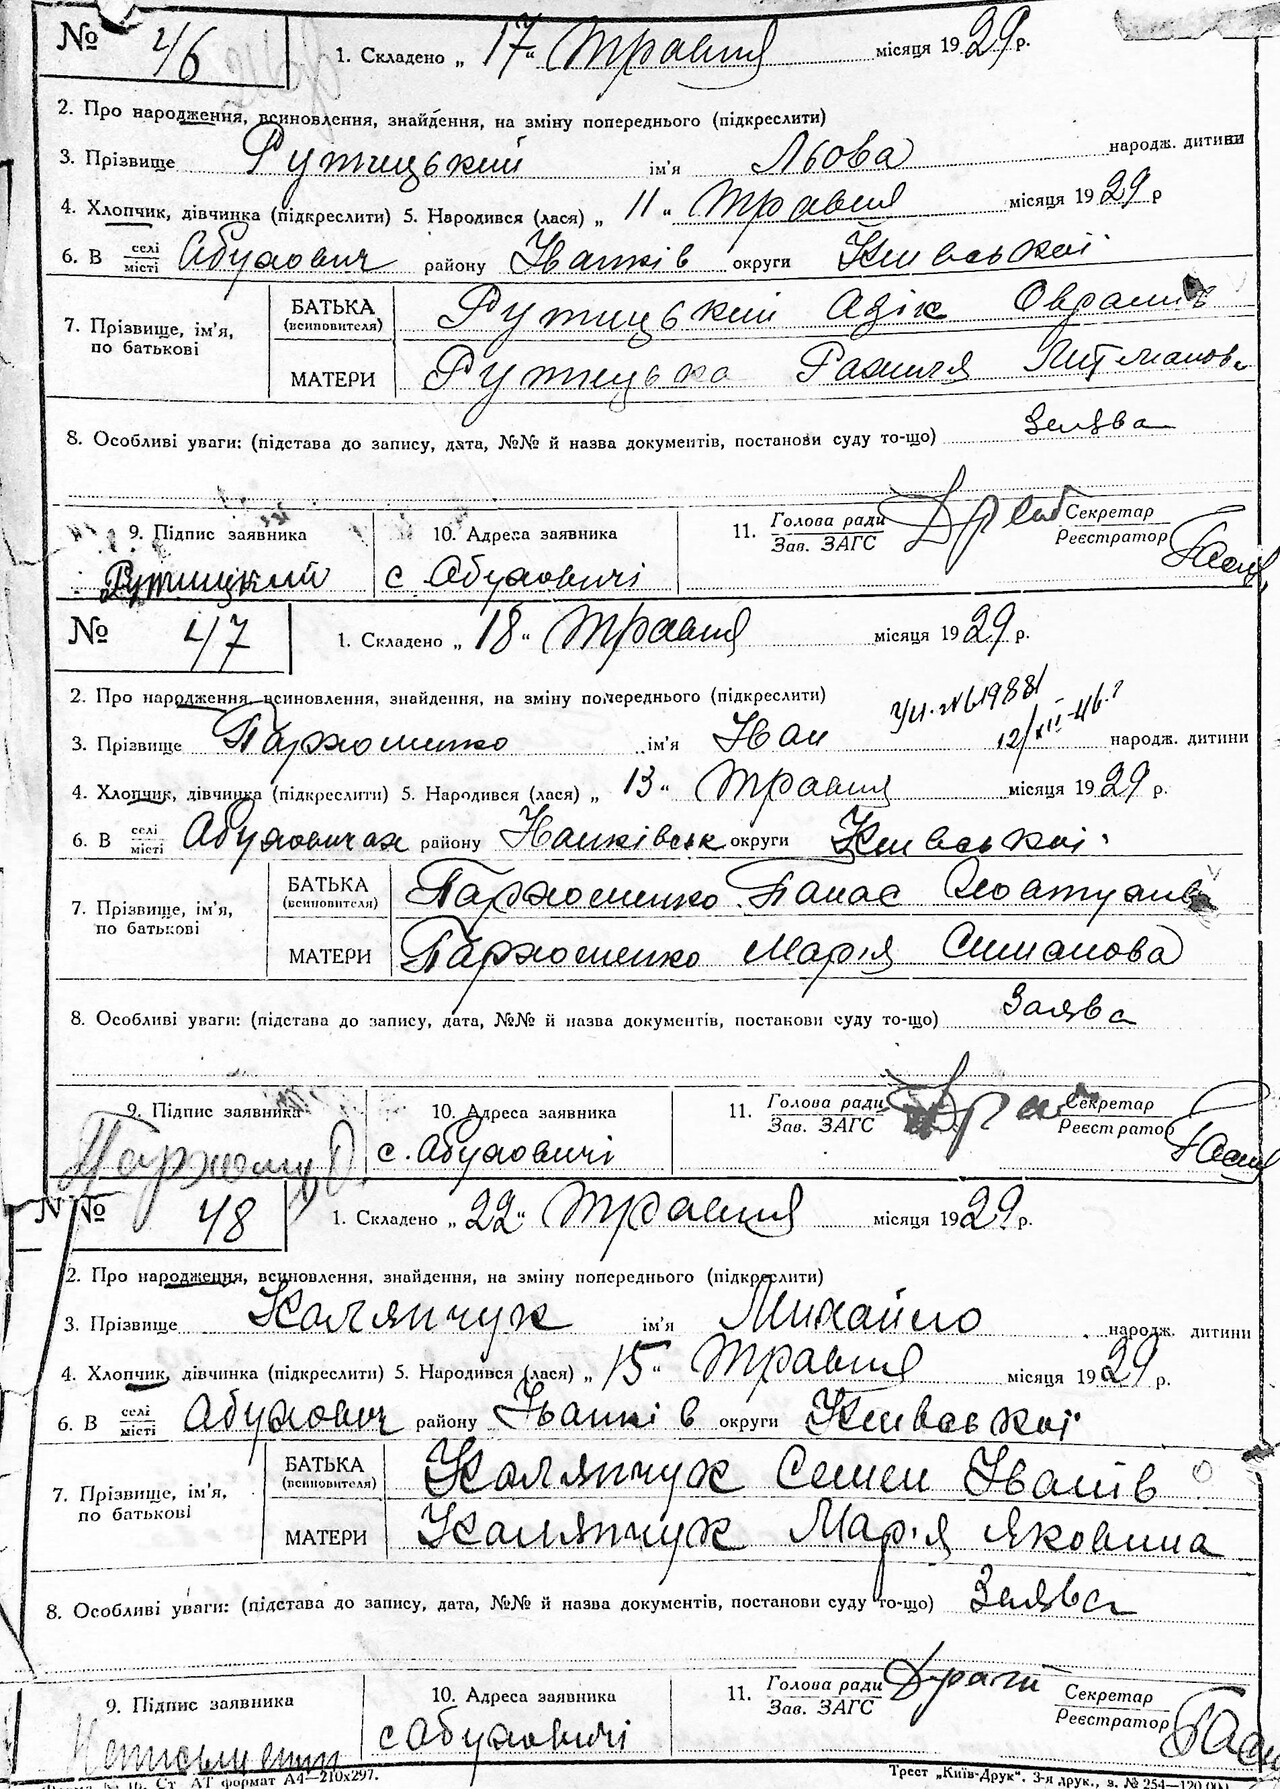 № 46 1. Складено „ 17 “ Травня місяця 1929 р.
2. Про народження, всиновлення, знайдення, на зміну попереднього (підкреслити)
3. Прізвище Ружицький ім'я Льова народж. дитини
4. Хлопчик, дівчинка (підкреслити) 5. Народився (лася) „ 11 “ Травня місяця 1929 р
6. В селі місті Абухович району Іванків округи Київської
7. Прізвище, ім'я, по батькові
БАТЬКА (всиновителя) Ружицький Азік
МАТЕРИ Ружицька Рахиля
8. Особливі уваги: (підстава до запису, дата, №№ й назва документів, постанови суду то-що) Заява
9. Підпис заявника 10. Адреса заявника 11. Голова ради Зав. ЗАГС Секретар Реєстратор
Ружицкий с Абуховичі
№ 47 1. Складено „ 18 “ Травня місяця 1929 р.
2. Про народження, всиновлення, знайдення, на зміну попереднього (підкреслити)
3. Прізвище Пархоменко ім'я Іван народж. дитини
4. Хлопчик, дівчинка (підкреслити) 5. Народився (лася) „ 13 “ Травня місяця 1929 р.
6. В селі місті Абуховичах району Іванківськ округи Київської
7. Прізвище, ім'я, по батькові
БАТЬКА (всиновителя) Пархоменко Панас
МАТЕРИ Пархоменко Марія Симанова
8. Особливі уваги: (підстава до запису, дата, №№ й назва документів, постанови суду то-що) Заява
9. Підпис заявника 10. Адреса заявника 11. Голова ради Зав. ЗАГС Секретар Реєстратор
с. Абуховичі
№ 48 1. Складено „ 22 “ Травня місяця 1929 р.
2. Про народження, всиновлення, знайдення, на зміну попереднього (підкреслити)
3. Прізвище Калянчук ім'я Михайло народж. дитини
4. Хлопчик, дівчинка (підкреслити) 5. Народився (лася) „ 15 “ Травня місяця 1929 р.
6. В селі місті Абухович району Іванків округи Київської
7. Прізвище, ім'я, по батькові
БАТЬКА (всиновителя) Калянчук Семен Іванів
МАТЕРИ Калянчук Марія Яковина
8. Особливі уваги: (підстава до запису, дата, №№ й назва документів, постанови суду то-що) Заява
9. Підпис заявника 10. Адреса заявника 11. Голова ради Зав. ЗАГС Секретар Реєстратор
с Абуховичі
Ст. АТ формат А4—210х297. Трест „Київ-Друк“. 3-я друк., з. № 254—120.000